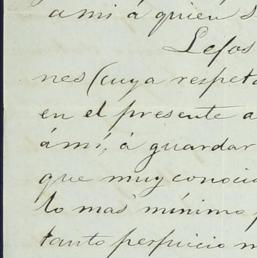 a mi á quien s
Lejos
nes (cuya respeta
en el presente a
ámi, á guardar
que muy conocid
lo mas mínimo p
tanto perjuicio m